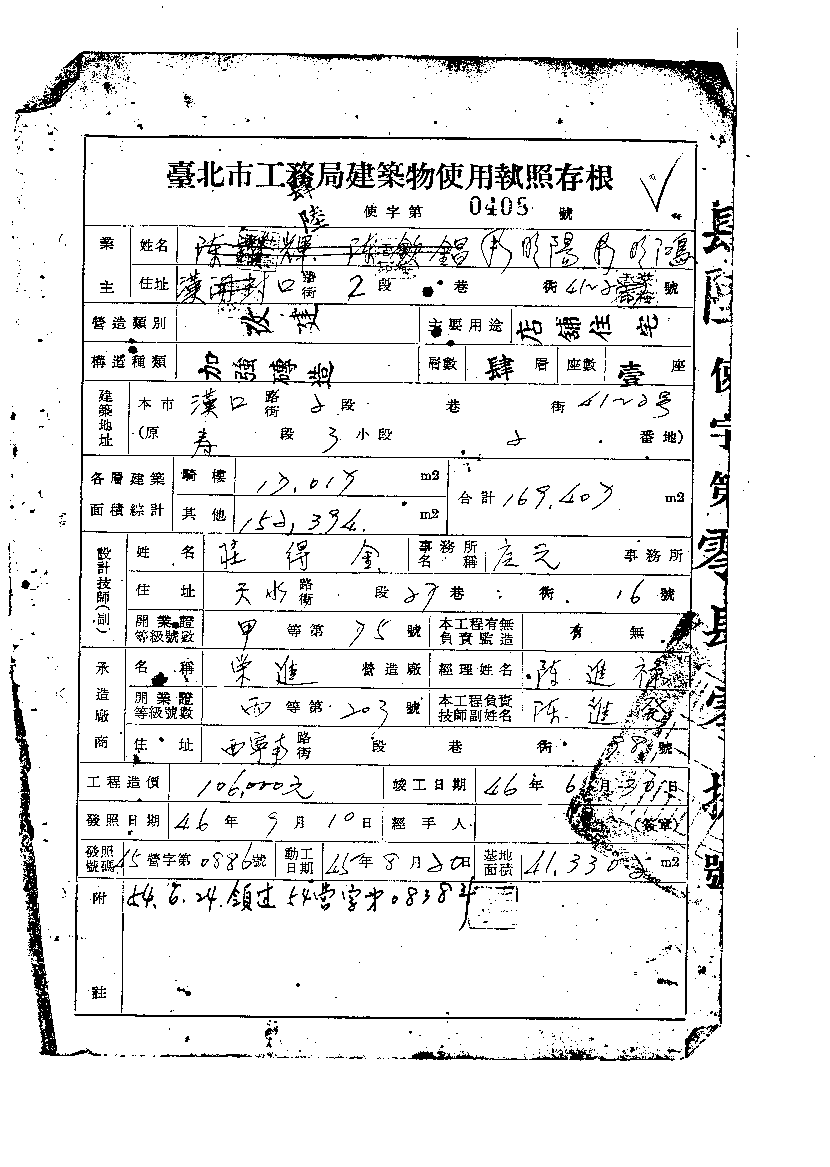 臺北市工務局建築物使用執照存根
肆陸
使字第 0405 號
業主 姓名 陳 輝 陳 錩 明陽 明鴻
住址 漢口 路街 2 段 巷 街 41~2 號
營造類別 改建 主要用途 店舖住宅
構造種類 加強磚造 層數 肆 層 座數 壹 座
建築地址 本市 漢口 路街 2 段 巷 街 41~2号
(原 壽 段 3 小段 2 番地)
各層建築面積綜計 騎樓 17.017 m2 合計 169.407 m2
其他 152.394 m2
設計技師(副) 姓名 莊得金 事務所名稱 事務所
住址 天水 路街 段 27 巷 街 16 號
開業證等級號數 甲 等第 75 號 本工程有無負責監造 有 無
承造廠商 名稱 榮進 營造廠 經理姓名 陳進祿
開業證等級號數 丙 等第 203 號 本工程負責技師副姓名 陳進發
住址 西寧南 路街 段 巷 街 98 號
工程造價 106,000元 竣工日期 46 年 6 月 30 日
發照日期 46 年 9 月 10 日 經手人 (簽章)
發照號碼 45 營字第 0886 號 動工日期 45 年 8 月 20 日 基地面積 41.330 m2
附註 54.6.24.領过54营字第0838号
肆陸使字第零肆零 號